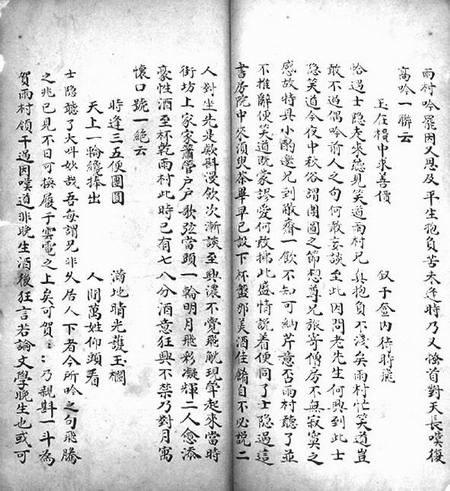 雨村吟罷因又思及平生抱負苦未逢時乃又搔首對天長嘆復
高吟一聯云
玉在櫝中求善價　釵于奩內待時飛
恰過士隱走來聽見笑道雨村兄真抱負不淺矣雨村忙笑道豈
敢不過偶吟前人之句何敢妄談至此因問老先生何興到此士
隱笑道今夜中秋俗謂團圓之節想尊兄旅寄僧房不無寂寞之
感故特具小酌邀兄到敝齋一飲不知可納芹意否雨村聽了並
不推辭便笑道既蒙謬愛何敢拂此盛情說着便同了士隱過這
書房院中來湏臾茶畢早已設下杯盤那美酒佳餚自不必說二
人對坐先是款斟漫飲次漸談至興濃不覺飛觥現斝起來當時
街坊上家家簫管戶戶歌弦當頭一輪明月飛彩凝輝二人愈添
豪性酒至杯乾雨村此時已有七八分酒意狂興不禁乃對月寓
懷口號一絕云
時逢三五便團圓　滿地晴光護玉欄
天上一輪纔捧出　人間萬姓仰頭看
士隱聽了大叫妙哉吾每謂兄非久居人下者今所吟之句飛騰
之兆已見不日可接履于雲霓之上矣可賀々々乃親斟一斗為
賀雨村領干過因嘆道非晚生酒後狂言若論文學晚生也或可